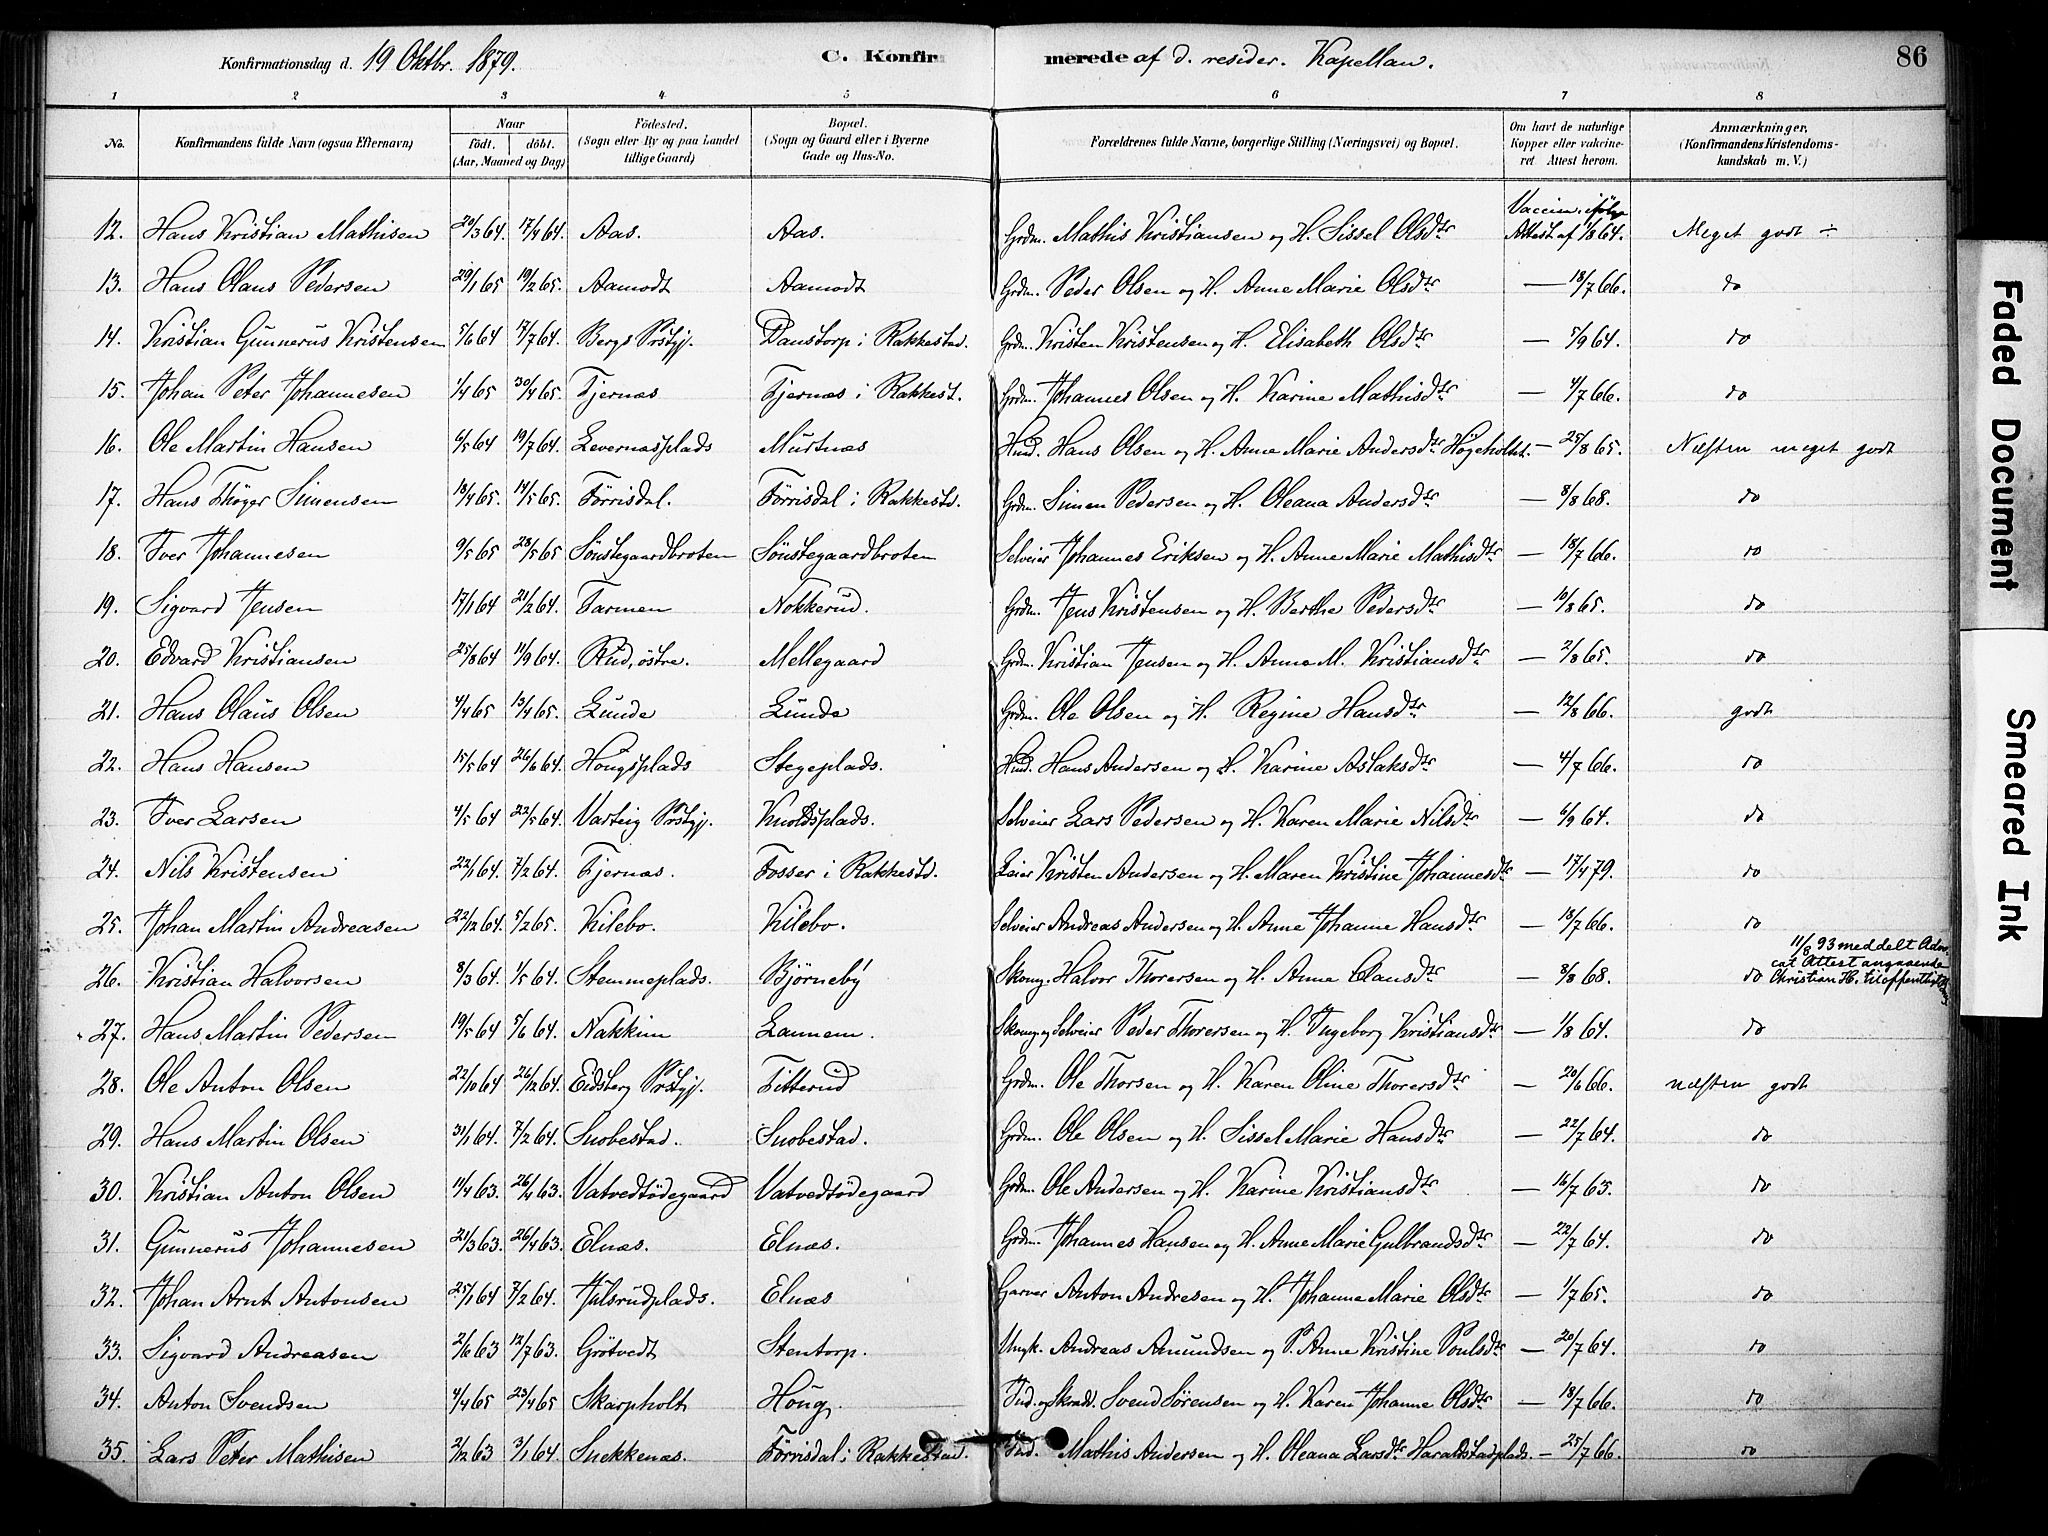 Konfirmationsdag d. 19 Oktbr. 1879. C. Konfirmerede af d. resider. Kapellan. 86
1 2 3 4 5 6 7 8
No. Konfirmandens fulde Navn (ogsaa Efternavn) Naar födt. döbt. (Aar, Maaned og Dag) Födested. (Sogn eller By og paa Landet tillige Gaard) Bopæl. (Sogn og Gaard eller i Byerne Gade og Hus-No. Forældrenes fulde Navne, borgerlige Stilling (Næringsvei) og Bopæl. Om havt de naturlige Kopper eller vakcineret Attest herom. Anmærkninger, (Konfirmandens Kristendomskundskab m. V.)
12. Hans Kristian Mathisen 20/3 64. 17/4 64. Aas. Aas. Grdm. Mathis Kristiansen og H. Sissel Olsdtr Vaccin. ifølge Attest af 1/8 64. Meget godt ÷
13. Hans Olaus Pedersen 29/1 65 19/2 65. Aamodt Aamodt Grdm. Peder Olsen og H. Anne Marie Olsdtr — 18/7 66. do
14. Kristian Gunnerus Kristensen 5/6 64 17/7 64. Bergs Prstgj. Danstorp i Rakkestad. Grdm. Kristen Kristensen og H. Elisabeth Olsdtr — 5/9 64. do
15. Johan Peter Johannesen 1/4 65 30/4 65. Tjernæs Tjernæs i Rakkest. Grdm. Johannes Olsen og H. Karine Mathisdtr — 4/7 66. do
16. Ole Martin Hansen 6/5 64 19/7 64. Levernæsplads Murtnæs Husm. Hans Olsen og H. Anne Marie Andersdtr Högeholtet. — 25/8 65. Næsten meget godt
17. Hans Thöger Simensen 18/4 65. 14/5 65. Törrisdal. Törrisdal i Rakkestd. Grdm. Simen Pedersen og H. Oleana Andersdtr — 8/8 68. do
18. Iver Johannesen 9/5 65 28/5 65 Sönstegaardbroten Sönstegaardbroten Selveier Johannes Eriksen og H. Anne Marie Mathisdtr — 18/7 66. do
19. Sigvard Jensen 17/1 64 21/2 64. Farmen Nokkerud. Grdm. Jens Kristensen og H. Berthe Pedersdtr — 10/8 65. do
20. Edvard Kristiansen 25/8 64 11/9 64. Rud, östre. Mellegaard Grdm. Kristian Jensen og H. Anne M. Kristiansdtr — 2/8 65. do
21. Hans Olaus Olsen 4/4 65 13/4 65. Lunde Lunde Grdm. Ole Olsen og H. Regine Hansdtr — 12/8 66. godt
22. Hans Hansen 15/5 64 26/6 64. Hougsplads Stegeplads. Husm. Hans Andersen og H. Karine Aslaksdtr — 4/7 66. do
23. Iver Larsen 4/5 64 22/5 64. Varteig Prstgj. Knoldsplads. Selveier Lars Pedersen og H. Karen Marie Nilsdtr — 6/9 64. do
24. Nils Kristensen 22/1 64. 7/2 64. Tjernæs. Fosser i Rakkestd. Leier Kristen Andersen og H. Maren Kristine Johannesdtr — 17/4 79. do
25. Johan Martin Andreasen 22/12 64. 5/2 65. Kilebo. Kilebo. Selveier Andreas Andersen og H. Anne Johanne Hansdtr — 18/7 66. do
26. Kristian Halvorsen 8/3 64. 1/5 64. Stemmeplads. Björneby Skomg. Halvor Thorersen og H. Anne Olausdtr — 8/8 68. do 11/8 93 meddelt Advocat Attest angaaende Christian H. til offentligt
27. Hans Martin Pedersen 19/5 64 5/6 64. Nakkim Lannem. Skomg. og Selveier Peder Thorersen og H. Ingeborg Kristiansdtr — 1/8 64. do
28. Ole Anton Olsen 22/10 64 26/12 64. Eidsberg Prstgj. Titterud Grdm. Ole Thorsen og H. Karen Oline Thorersdtr — 20/6 66. næsten godt
29. Hans Martin Olsen 31/1 64. 7/2 64. Snobestad. Snobestad. Grdm. Ole Olsen og H. Sissel Marie Hansdtr — 22/7 64. do
30. Kristian Anton Olsen 11/4 63. 26/4 63. Vatvedtödegaard Vatvedtödegaard Grdm. Ole Andersen og H. Karine Kristiansdtr — 16/7 63. do
31. Gunnerus Johannesen 21/3 63. 26/4 63. Elnæs. Elnæs. Grdm. Johannes Hansen og H. Anne Marie Gulbrandsdtr — 22/7 64. do
32. Johan Arnt Antonsen 25/1 64 7/2 64. Julsrudplads. Elnæs Garver Anton Andresen og H. Johanne Marie Olsdtr — 1/7 65. do
33. Sigvard Andreasen 2/6 63 12/7 63. Grötvedt Stentorp. Ungk. Andreas Amundsen og P. Anne Kristine Poulsdtr — 20/7 64. do
34. Anton Svendsen 4/4 65 23/4 65 Skarpholt Houg. Ind. og Skrædd. Svend Sörensen og H. Karen Johanne Olsdtr — 18/7 66. do
35. Lars Peter Mathisen 2/12 63 3/1 64. Snekkenæs. Törrisdal i Rakkestad. Ind. Mathis Andersen og H. Oleana Larsdtr Haraldstadplads. — 25/7 66. do
Faded Document
Smeared Ink